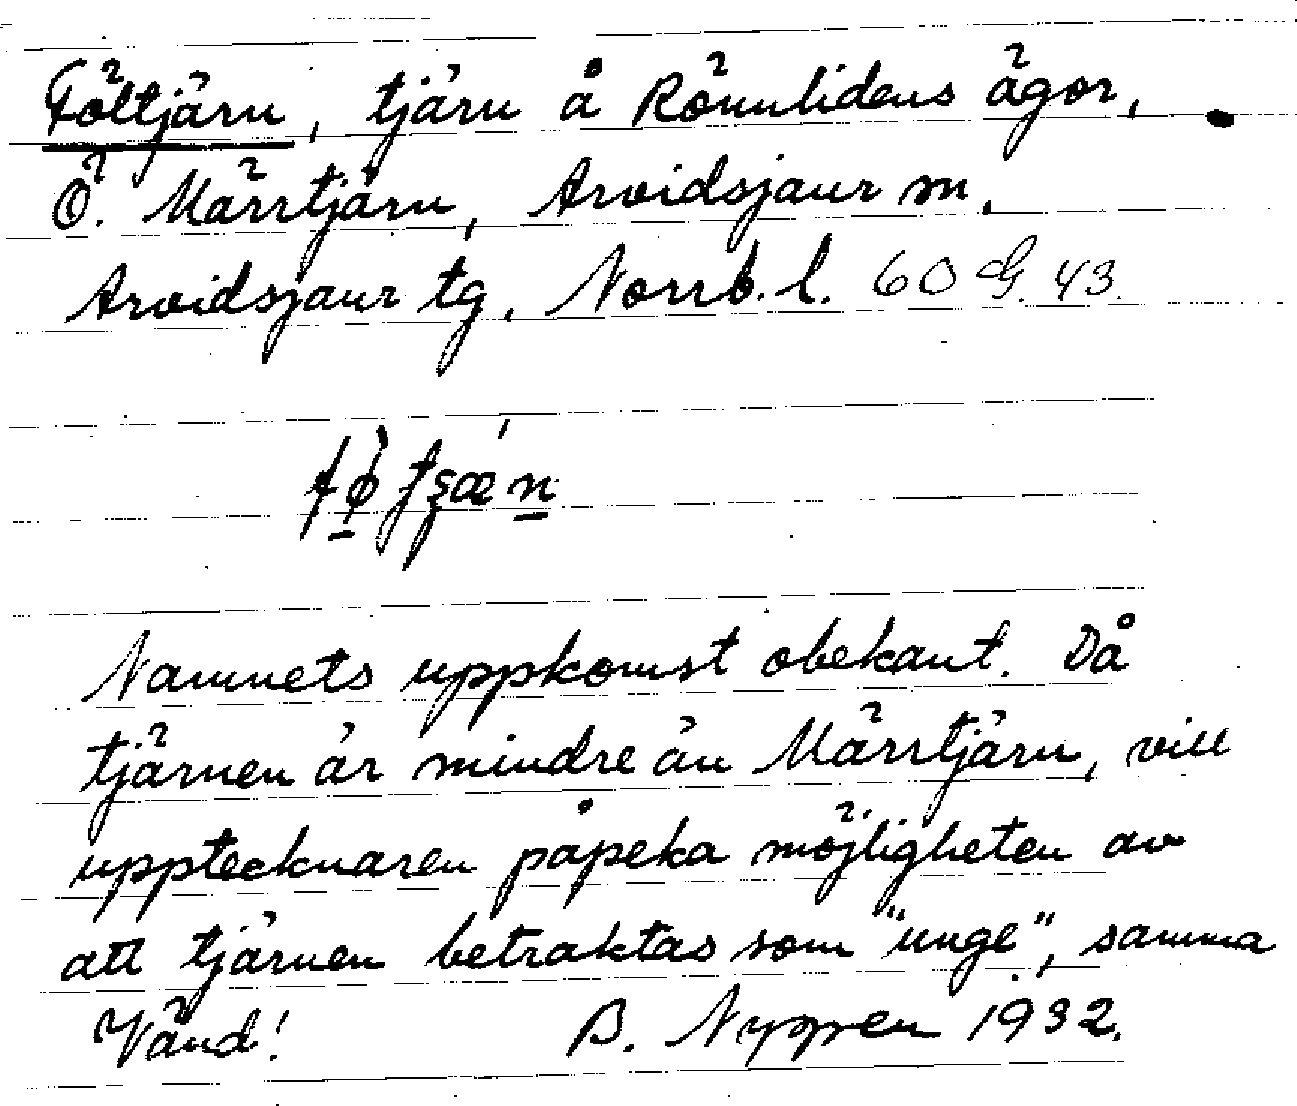 Föltjärn, tjärn å Rönnlidens ägor,
Ö. Märrtjärn, Arvidsjaur sn,
Arvidsjaur tg, Norrb. l. 60 G. 43.
Namnets uppkomst obekant. Då
tjärnen är mindre än Märrtjärn, vill
upptecknaren påpeka möjligheten av
att tjärnen betraktas som "unge", samma
Vänd! B. Nygren 1932.